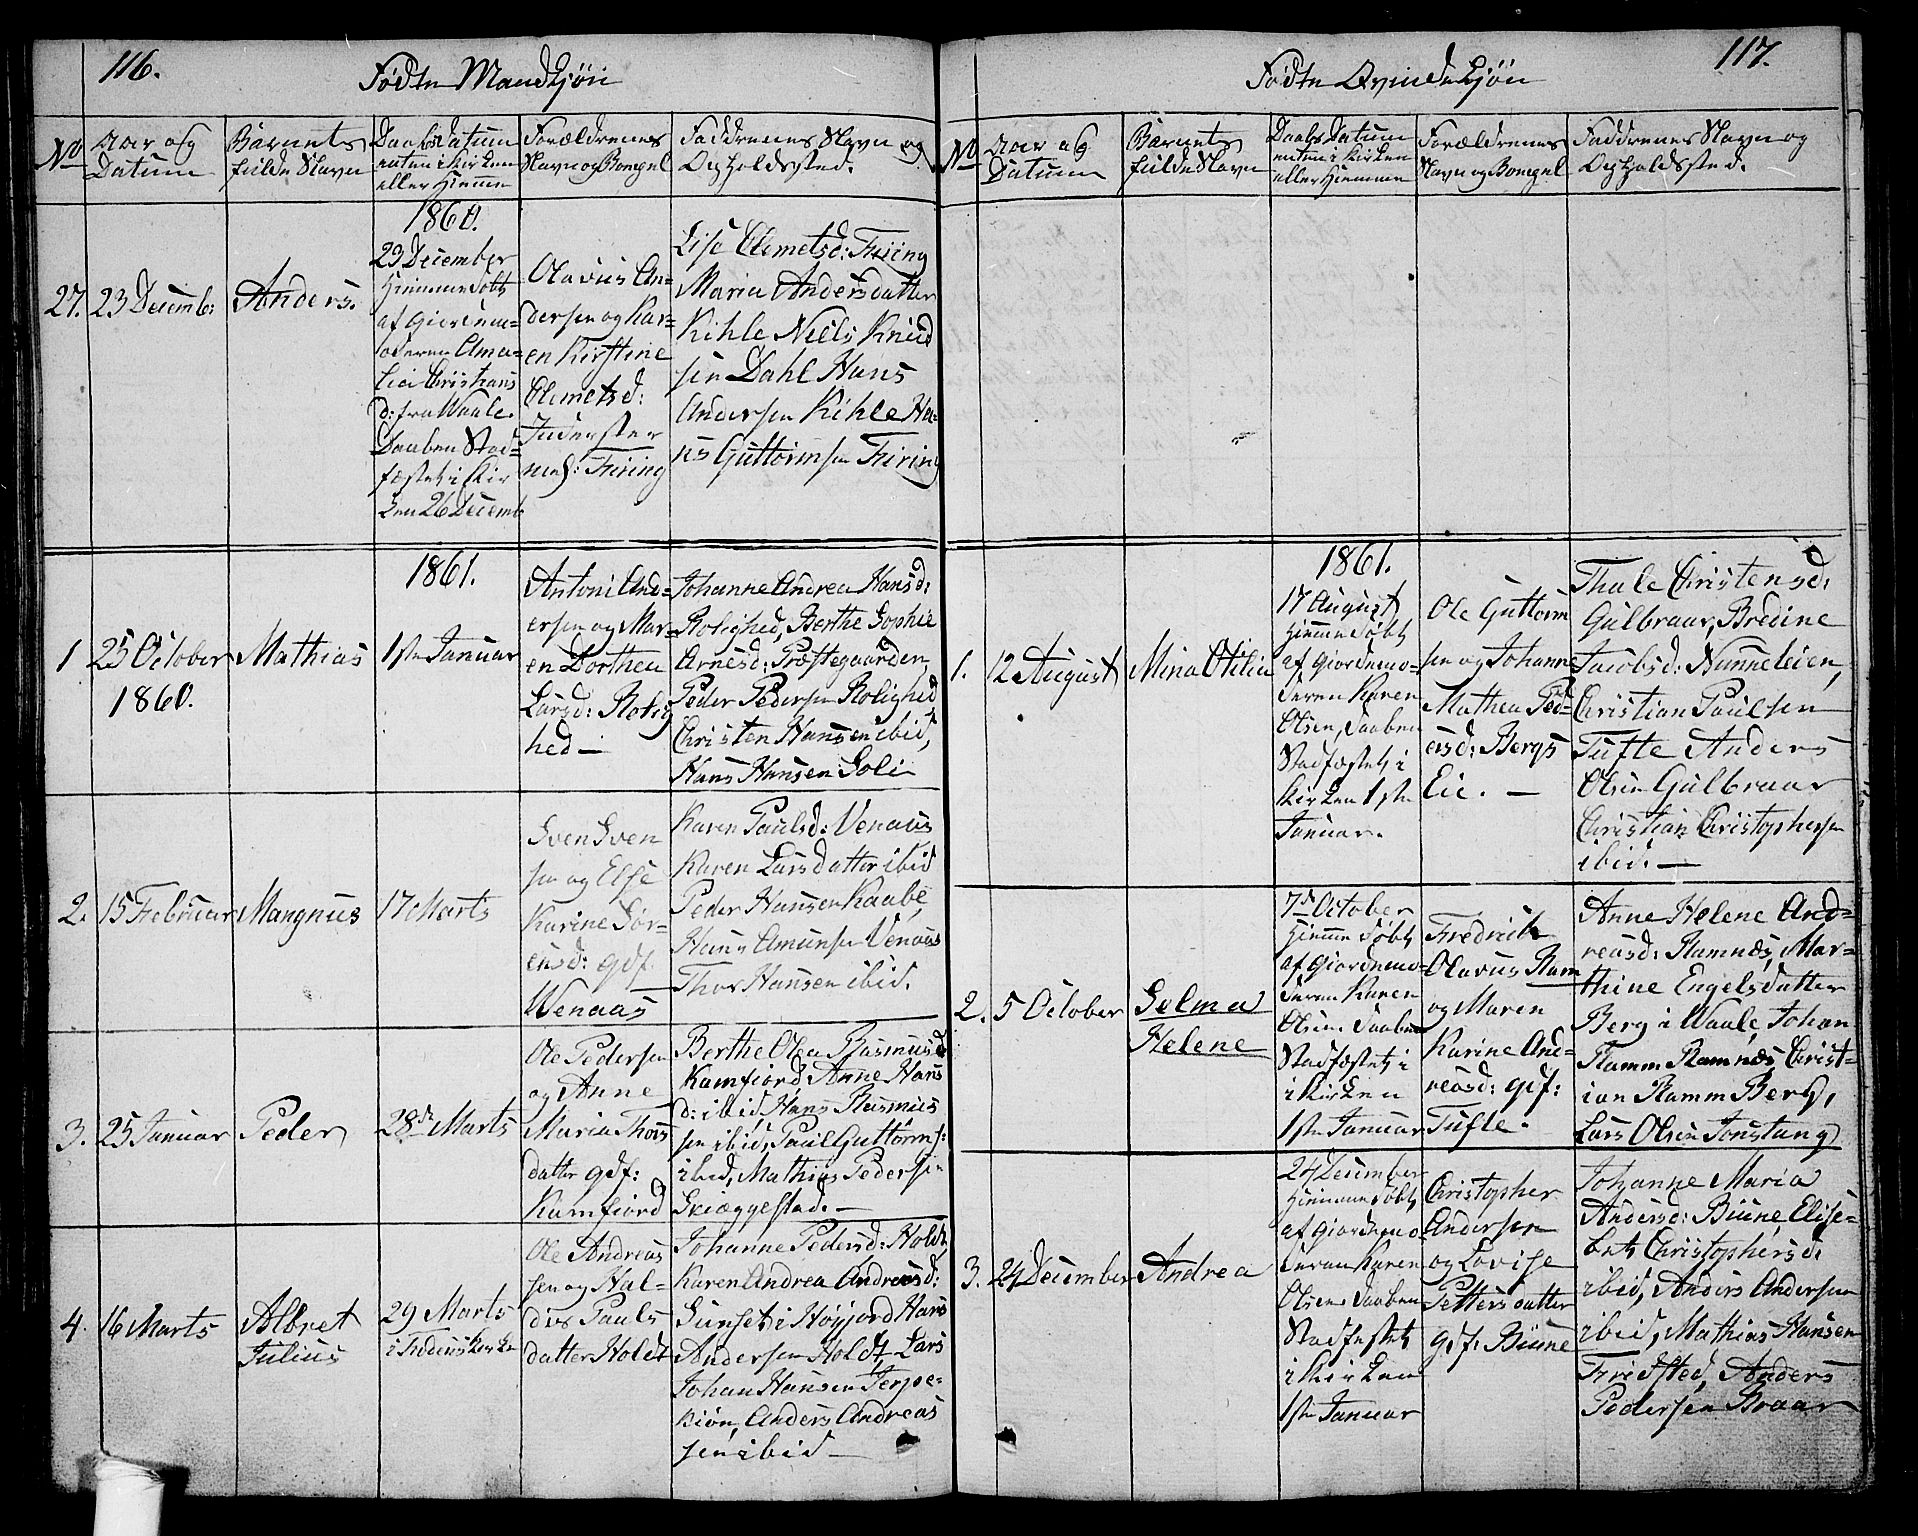 116.
Fødte Mandkjøn
No
Aar og
Datum
Barnets
fulde Navn
Daabs Datum
enten i Kirken
eller Hjemme
Forældrenes
Navn og Boepæl
Faddrenes Navn og
Opholdssted.
27.
23 Decemb:
Anders.
1860.
23 December
Hiemmedøbt
af Giordemo-
deren Ama-
lia Christians
d: fra Waale.
Daaben Stad-
fæstet i Kir
den 26 Decemb
Olavus An-
dersen og Kar-
en Kirstine
Clemetsd:
Inderster
Firing
Lise Clemetsd: Firing
Maria Andersdatter
Kihle Niels Knud
sen Dahl Hans
Andersen Kihle Ha-
ns Guttormsen Firing
1
25 October
1860.
Mathias
1861.
1ste Januar
Antoni And-
ersen og Mar-
en Dorthea
Larsd: Rolig
hed —
Johanne Andrea Hansd:
Rolighed, Berthe Sophie
Arnesd: Præstegaarden
Peder Pedersen Rolighed
Christen Hansen ibid,
Hans Hansen Soli
2.
15 Februar
Mangnus
17 Marts
Sven Sven
sen og Else
Karine Sør-
ensd: gdf.
Wenaas
Karen Paulsd: Venaas
Karen Larsdatter ibid
Peder Hansen Kaabe
Hans Amunsen Venaas
Thor Hansen ibid.
3.
25 Januar
Peder
28de Marts
Ole Pedersen
og Anne
Maria Thors
datter gdf:
Kamfiord
Berthe Olea Rasmusd
Kamfiord, Anne Hans
d: ibid, Hans Rasmus
sen ibid, Paul Guttorms:
ibid, Mathias Peders:
Skiæggestad. —
4.
16 Marts
Albret
Julius
29 Marts
Ole Andreas
sen og Hal-
dis Pauls
datter Holdt
Johanne Pedersd: Holdt
Karen Andrea Andreasd:
Sunset i Høyjord Hans
Andersen Holdt, Lars
Johan Hansen Jerpe-
kiøn, Anders Andreas
sen ibid —
117.
Fødte Qvindekjøn
No
Aar og
Datum
Barnets
fulde Navn
Daabs Datum
enten i Kirken
eller Hiemme
Forældrenes
Navn og Boepæl
Faddrenes Navn og
Opholdssted.
1.
12 August
Mina Otilia
1861.
17 August
Hiemmedøbt
af Giordemo-
deren Karen
Olsen, Daaben
Stadfæstet i
Kirken 1ste
Januar.
Ole Guttorm
sen og Johanne
Mathea Ped-
ersd: Bergs
Eie. —
Thale Christensd:
Gulbraar, Bredine
Jacobsd: Nunneleien,
Christian Paulsen
Tufte Anders
Olsen Gulbraar
Christian Christophersen
ibid. —
2.
5 October
Selma
Helene
7de October
Hiemmedøbt
af Giordemo-
deren Karen
Olsen. Daaben
Stadfæstet i
i Kirken
1ste Januar
Fredrik
Olavus Ram
og Maren
Karine And-
reasd: gdf:
Tufte.
Anne Helene And-
reasd: Ramnæs, Mar-
thine Engelsdatter
Berg i Waale, Johan
Ramm Ramnæs Christ-
ian Ramm Berg,
Lars Olsen Jonstang
3.
24 December
Andrea
24 December
Hiemmedøbt
af Giordemo-
deren Karen
Olsen. Daaben
Stadfestet
i Kirken
1ste Januar
Christopher
Andersen
og Lovise
Pettersdatter
gdf: Biune
Johanne Maria
Andersd: Biune, Elise-
beth Christophersd:
ibid, Anders Andersen
ibid, Mathias Hansen
Fridsted, Anders
Pedersen Braar